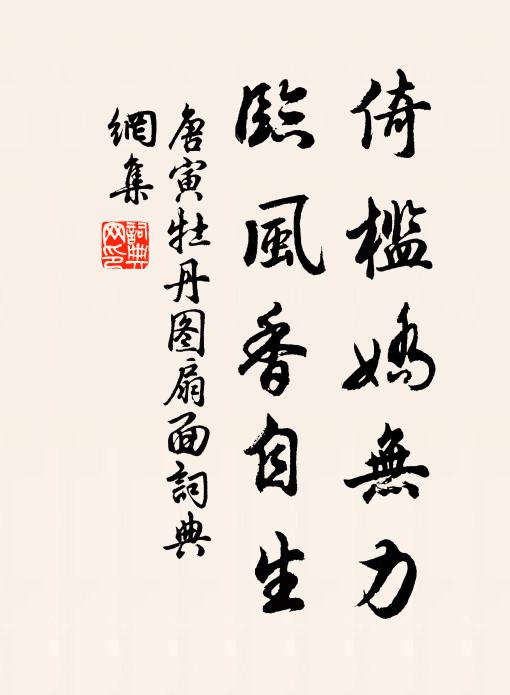 倚檻嬌無力
臨風香自生
唐寅牡丹图扇面詞典
網集
詞典網印